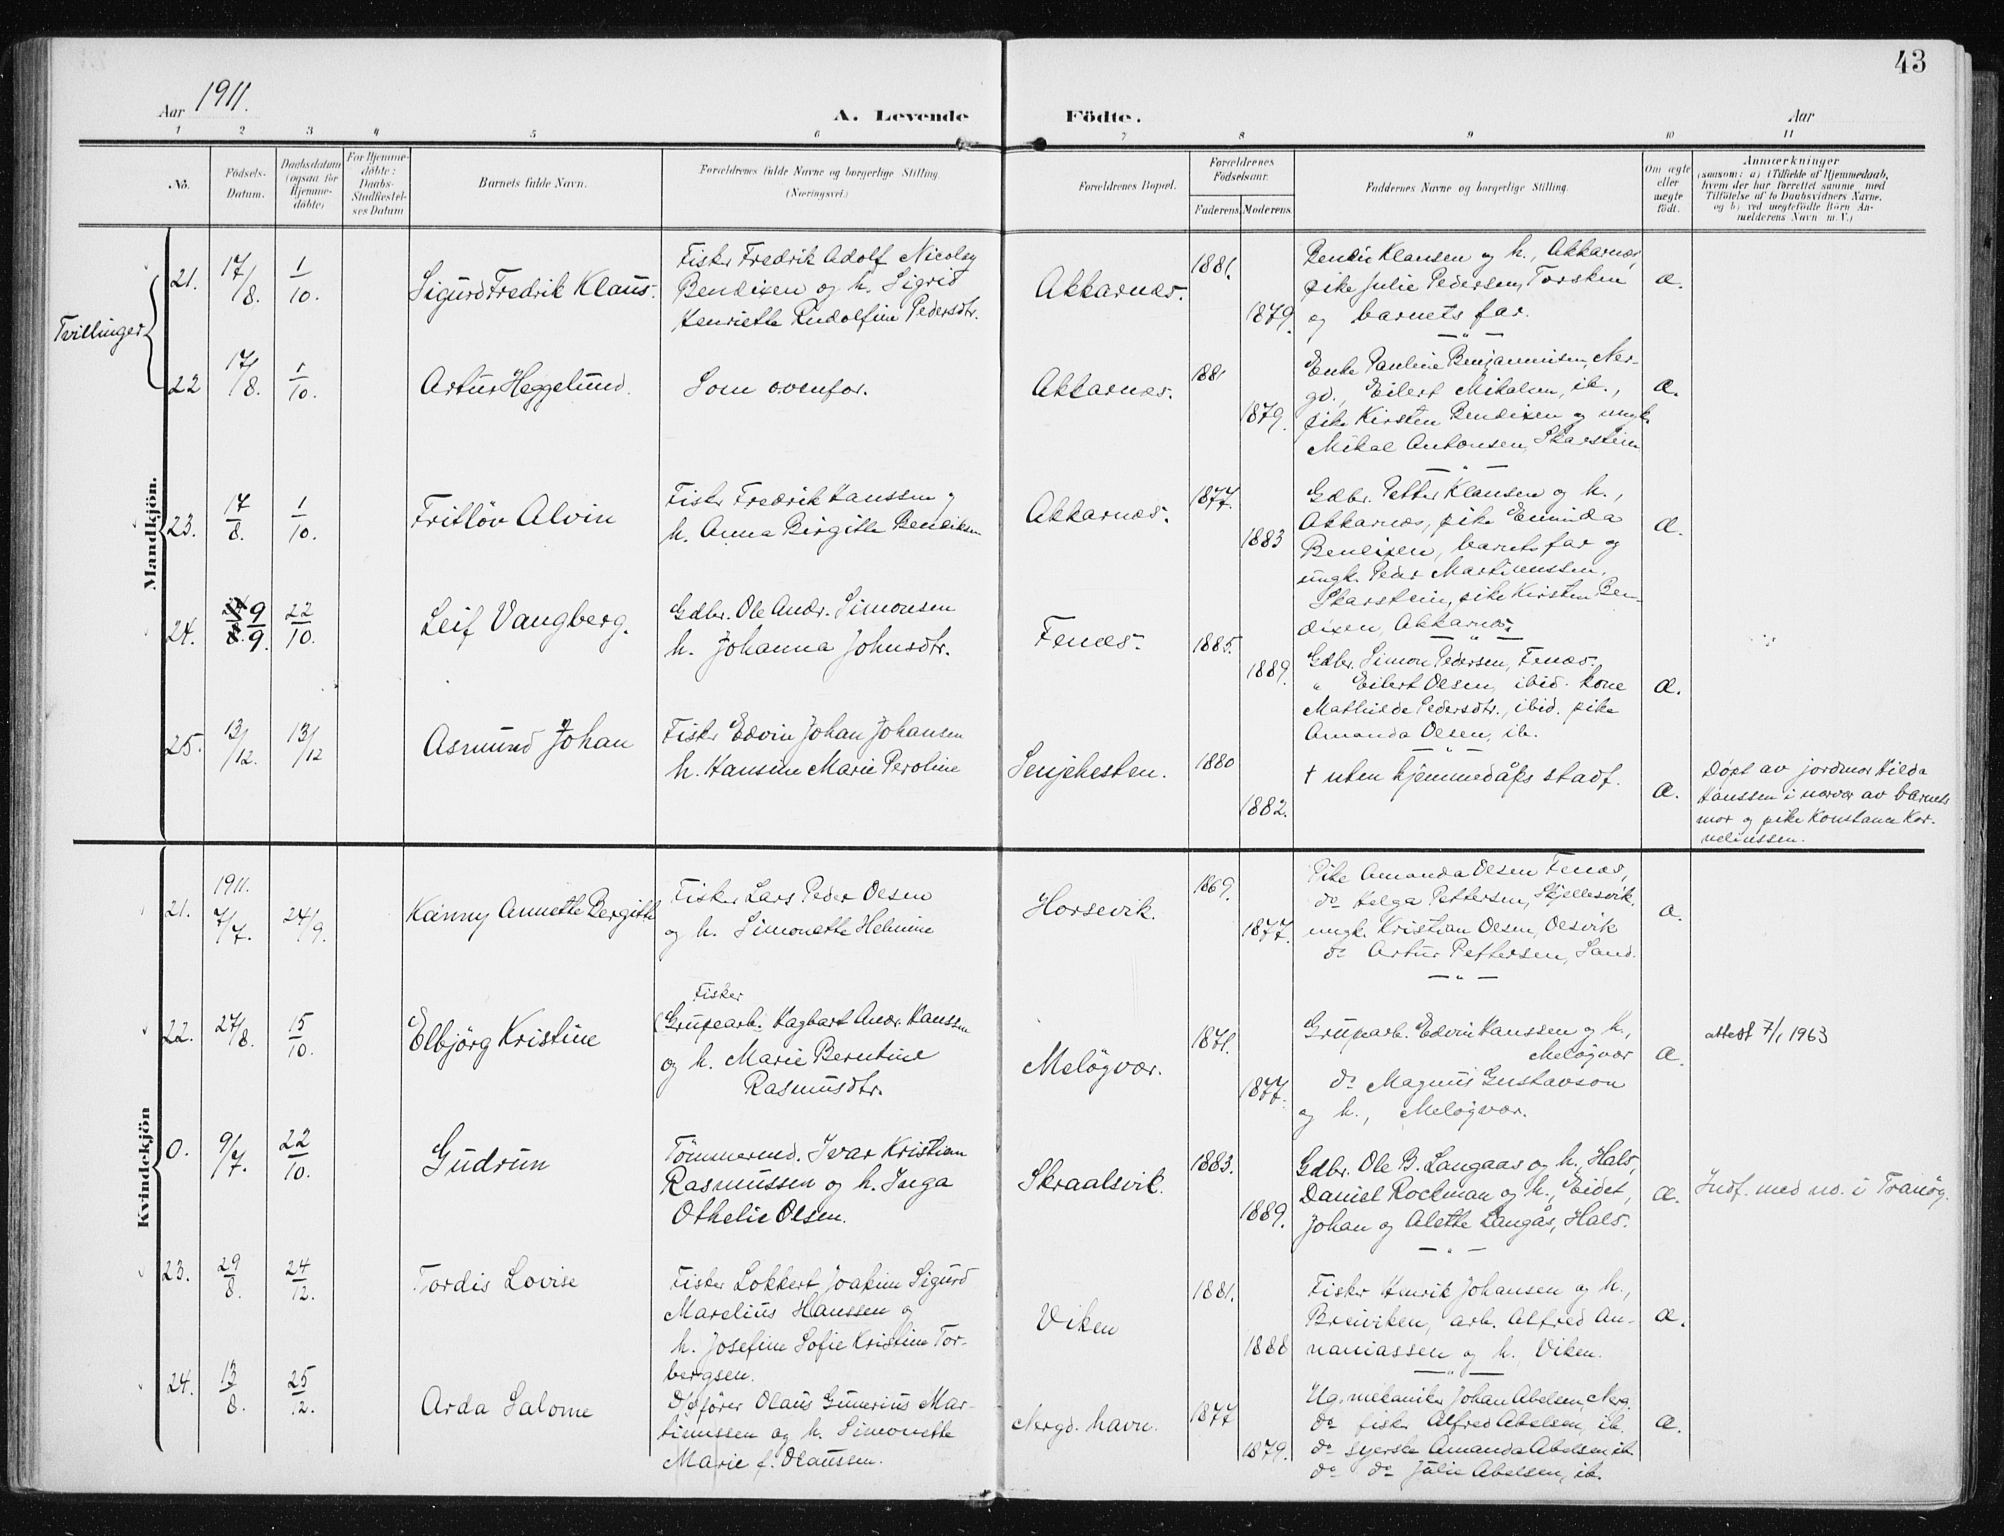 43
Aar 1911.
A. Levende Födte.
Aar
1 2 3 4 5 6 7 8 9 10 11
No.
Födsels-
Datum.
Daabsdatum
(ogsaa for
Hjemme-
döbte)
For Hjemme-
döbte:
Daabs-
Stadfæstel-
ses Datum
Barnets fulde Navn.
Forældrenes fulde Navne og borgerlige Stilling.
(Næringsvei.)
Forældrenes Bopæl.
Forældrenes
Födselsaar.
Faderens. Moderens.
Faddernes Navne og borgerlige Stilling.
Om ægte
eller
uægte
födt.
Anmærkninger
(saasom: a) i Tilfælde af Hjemmedaab,
hvem der har forrettet samme med
Tilföielse af to Daabsvidners Navne,
og b) ved uægtefödte Börn An-
melderens Navn m. V.)
Mandkjön.
Tvillinger
21. 17/8. 1/10. Sigurd Fredrik Klaus.
Fisker Fredrik Adolf Nicolay
Bendixen og h. Sigrid
Henriette Rudolfine Pedersdtr.
Akkarnæs. 1881. 1879.
Bendix Klausen og h., Akkarnæs,
pike Julie Pedersen, Torsken
og barnets far.
æ.
22 17/8. 1/10. Artur Heggelund.
Som ovenfor.
Akkarnæs. 1881 1879.
Enke Pauline Benjaminsen, Ner-
gd., Eilert Mikalsen, ib.,
pike Kirsten Bendixen og ungk.
Mikal Antonsen, Skarstein
æ.
23. 17/8. 1/10. Fritløv Alvin
Fisker Fredrik Hanssen og
h. Anna Birgitte Bendiksen
Akkarnæs. 1877. 1883
Gdbr. Petter Klausen og h.,
Akkarnæs, pike Enninda
Bendixen, barnets far og
ungk. Peder Martinussen,
Skarstein, pike Kirsten Ben-
dixen, Akkarnæs
æ.
24. 9/9. 22/10. Leif Vangberg.
Gdbr. Ole Andr. Simonsen
h. Johanna Johnsdtr.
Fenæs. 1885. 1889.
Gdbr. Simon Pedersen, Fenæs.
" Eilert Olsen, ibid. kone
Mathilde Pedersdtr., ibid. pike
Amanda Olsen, ib.
æ.
25. 13/12. 13/12 Asmund Johan
Fisker Edvin Johan Johansen
h. Hansine Marie Peroline
Senjehesten. 1880 1882.
† uten hjemmedåps stadf.
æ.
Døpt av jordmor Hilda
Hanssen i nærvær av barnets
mor og pike Konstance Kor-
neliussen.
Kvindekjön
21. 1911. 7/7. 24/9. Kanny Annette Bergith
Fisker Lars Peder Olsen
og h. Simonette Helmine
Horsevik. 1869. 1877.
Pike Amanda Olsen Fenæs,
do Helga Pettersen, Skjellesvik.
ungk. Kristian Olsen, Olsvik
do Artur Pettersen, Sand.
æ.
22. 27/8. 15/10. Elbjörg Kristine
Fisker
(Grupearb. Hagbart Andr. Hanssen
og h. Marie Berntine
Rasmusdtr.
Meløyvær. 1871. 1877.
Gruparb. Edvin Hanssen og h.,
Meløyvær
do Magnus Gustavson
og h., Meløyvær.
æ.
attest 7/1 1963
0. 9/7. 22/10. Gudrun
Tømmermd. Ivar Kristian
Rasmussen og h. Inga
Othelie Olsen.
Skraalsvik. 1883. 1889.
Gdbr. Ole B. Langaas og h., Hals,
Daniel Rockman og h., Eidet,
Johan og Alette Langås, Hals.
æ.
Indf. med no. i Tranøy.
23. 29/8. 24/12. Tordis Lovise
Fisker Lokkert Joakim Sigurd
Marelius Hanssen og
h. Josefine Sofie Kristine Tor-
bergsen.
Viken 1881. 1888
Fisker Henrik Johansen og h.,
Breiviken, arb. Alfred An-
naniassen og h. Viken.
æ.
24. 13/8. 25/12. Arda Salome
D/sfører Olaus Gunerius Mar-
tinussen og h. Simonette
Marie f. Olaussen.
Nergd. havn. 1877 1879.
Ug. mekaniker Johan Abelsen, Nerg.
do fisker Alfred Abelsen, ib.
do syerske Amanda Abelsen ib.
do do Julie Abelsen, ib.
æ.